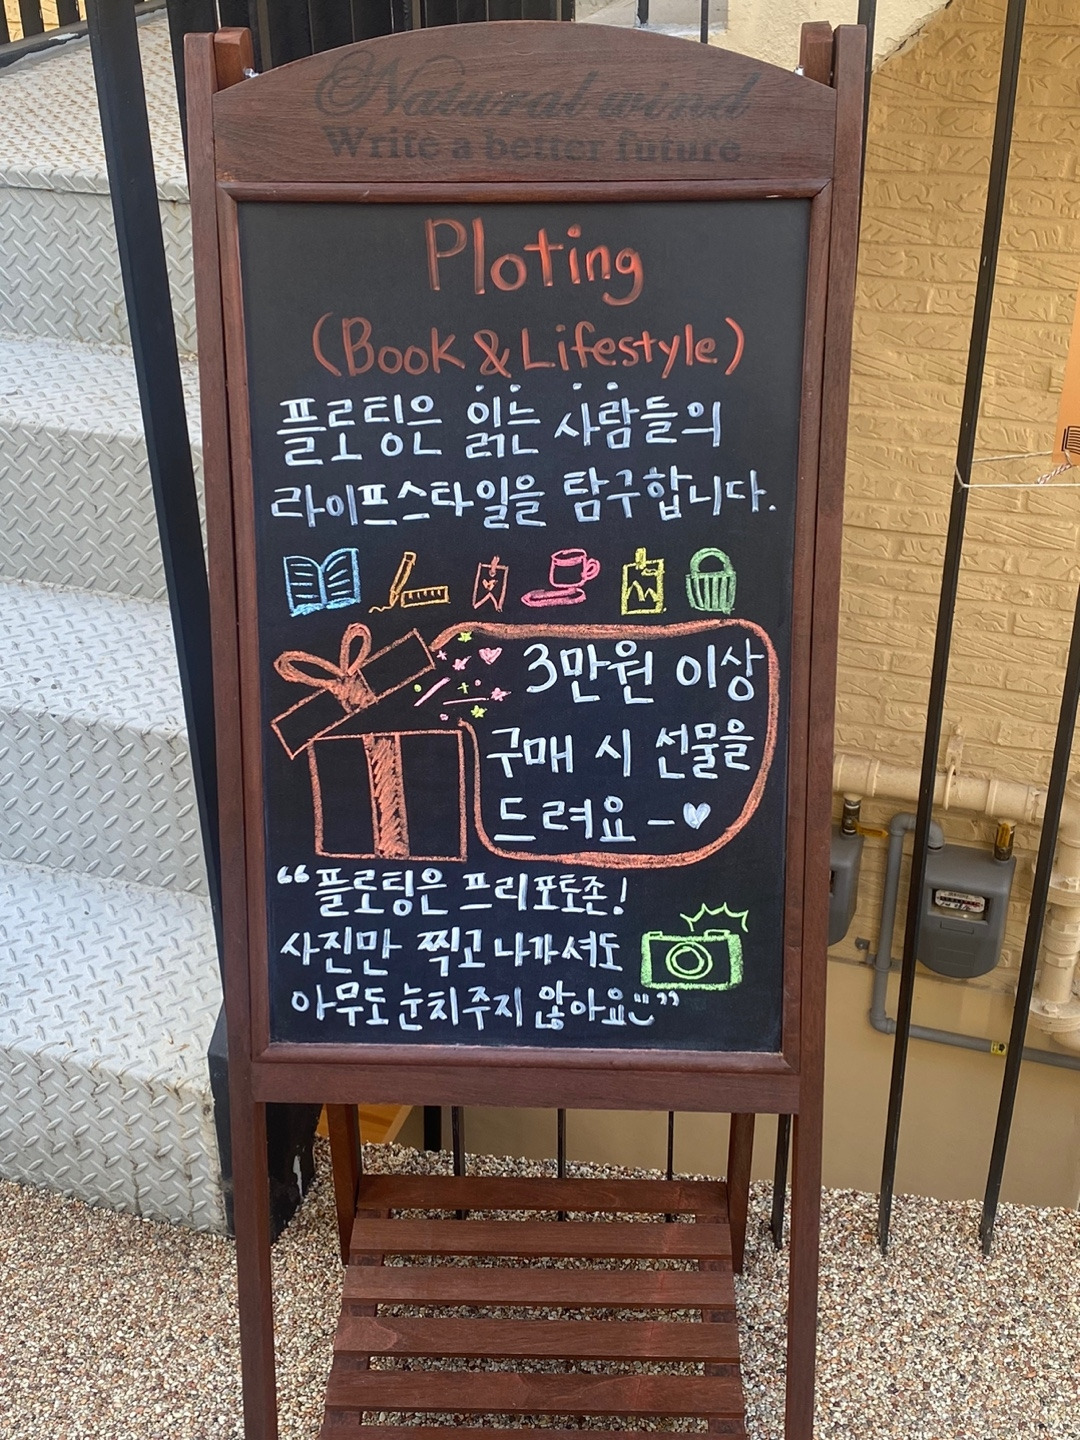 Natural wind
Write a better future
Ploting
(Book & Lifestyle)
플로팅은 읽는 사람들의
라이프스타일을 탐구합니다.
3만원 이상
구매 시 선물을
드려요 ~ ♥
“플로팅은 프리포토존!
사진만 찍고 나가셔도
아무도 눈치주지 않아요”